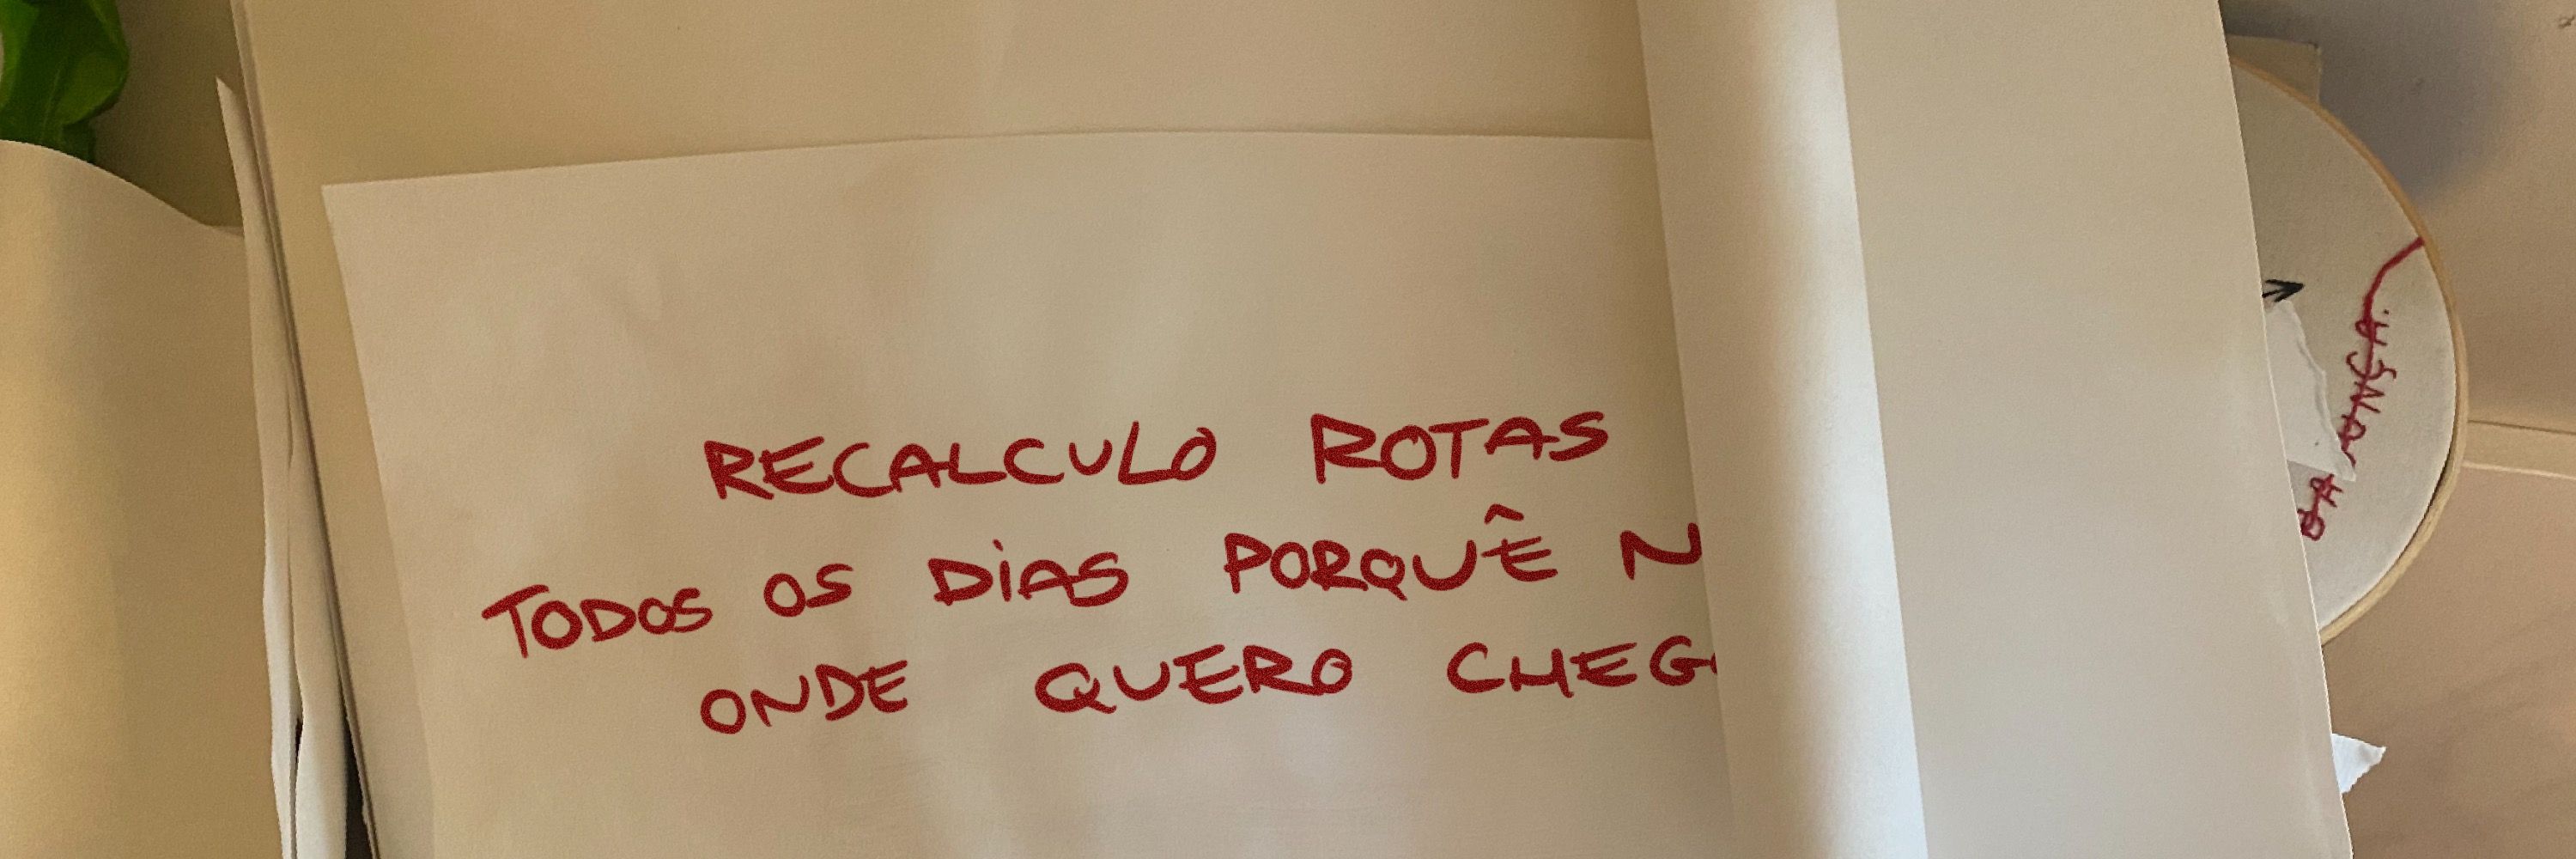 RECALCULO ROTAS
TODOS OS DIAS PORQUÊ N
ONDE QUERO CHEG
DA